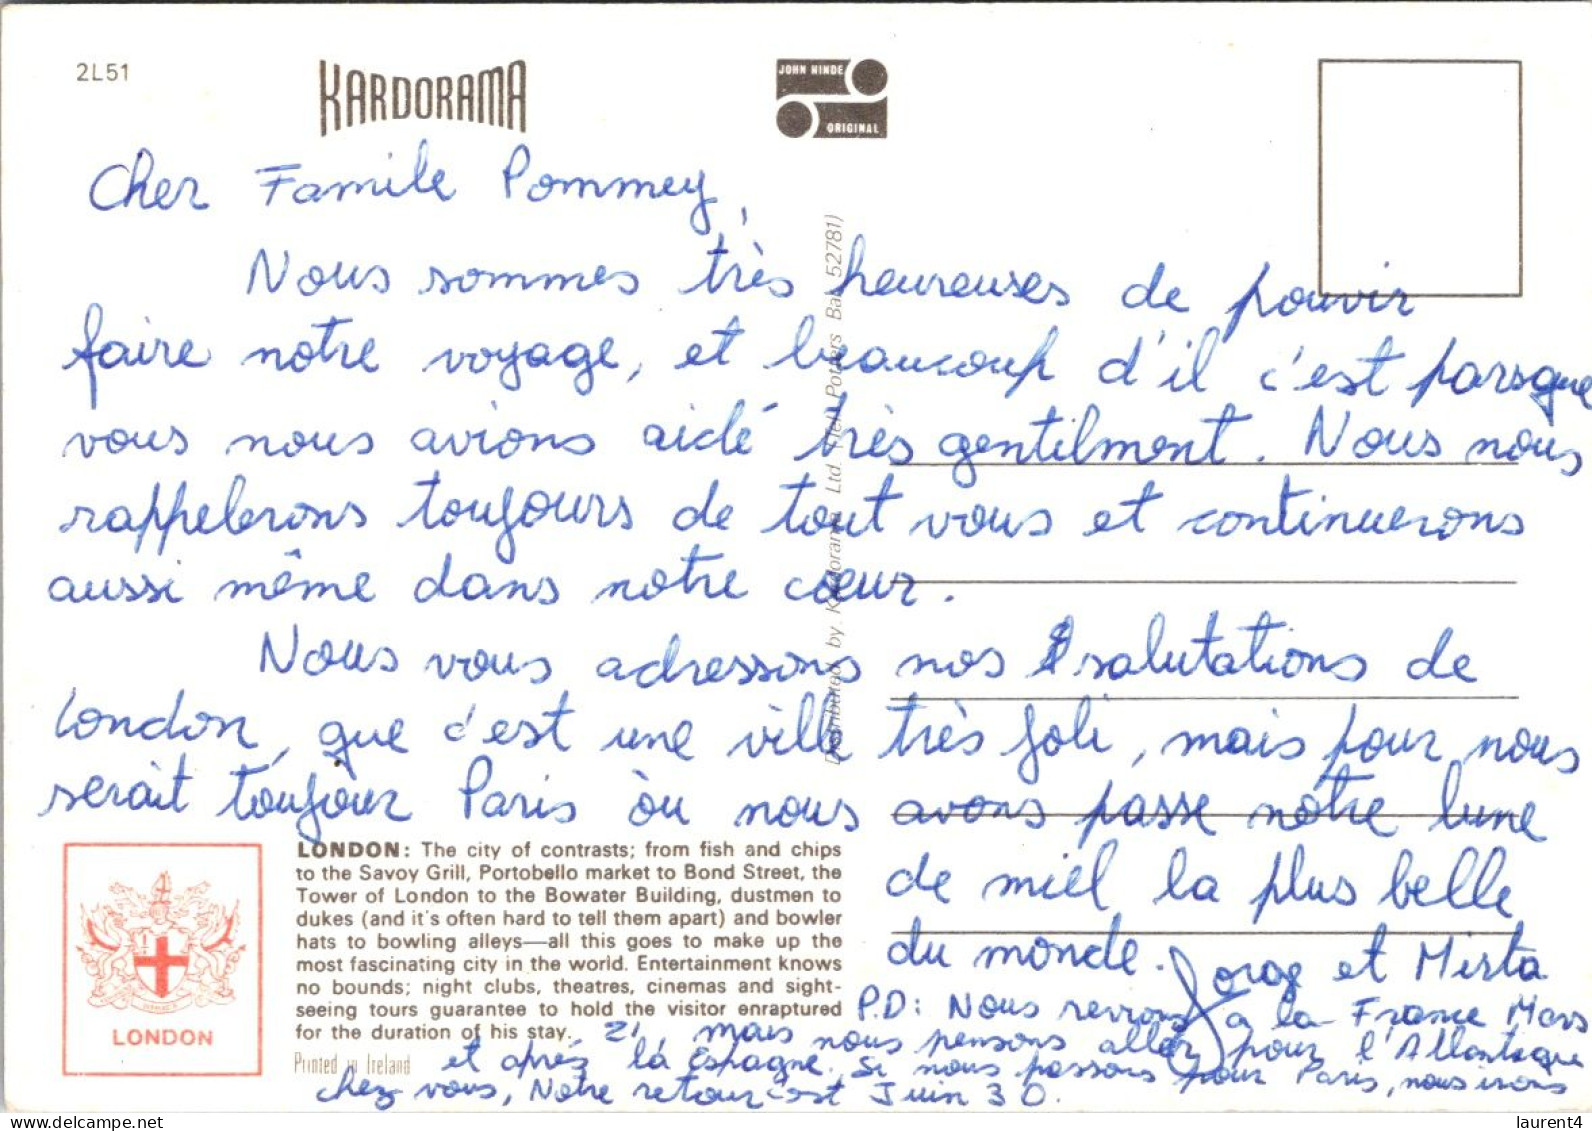 2L51
KARDORAMA
JOHN HINDE
ORIGINAL
Cher Famile Pommey,
Nous sommes très heureuses de pouvir
faire notre voyage, et beaucoup d'il c'est parsque
vous nous avions aidé très gentilment. Nous nous
rappelerons toujours de tout vous et continuerons
aussi même dans notre cœur.
Nous vous adressons nos salutations de
London, que c'est une ville très joli, mais pour nous
serait toujour Paris òu nous avons passe notre lune
de miel la plus belle
du monde.
Jorge et Mirta
P.D: Nous revions a la France Mars
21, mais nous pensons aller pour l'Atlantique
et après la Espagne. Si nous passons pour Paris, nous irons
chez vous, Notre retour est Juin 30.
Distributed by Kardorama Ltd. Potters Bar 52781)
LONDON: The city of contrasts; from fish and chips
to the Savoy Grill, Portobello market to Bond Street, the
Tower of London to the Bowater Building, dustmen to
dukes (and it's often hard to tell them apart) and bowler
hats to bowling alleys—all this goes to make up the
most fascinating city in the world. Entertainment knows
no bounds; night clubs, theatres, cinemas and sight-
seeing tours guarantee to hold the visitor enraptured
for the duration of his stay.
Printed in Ireland
LONDON
laurent4